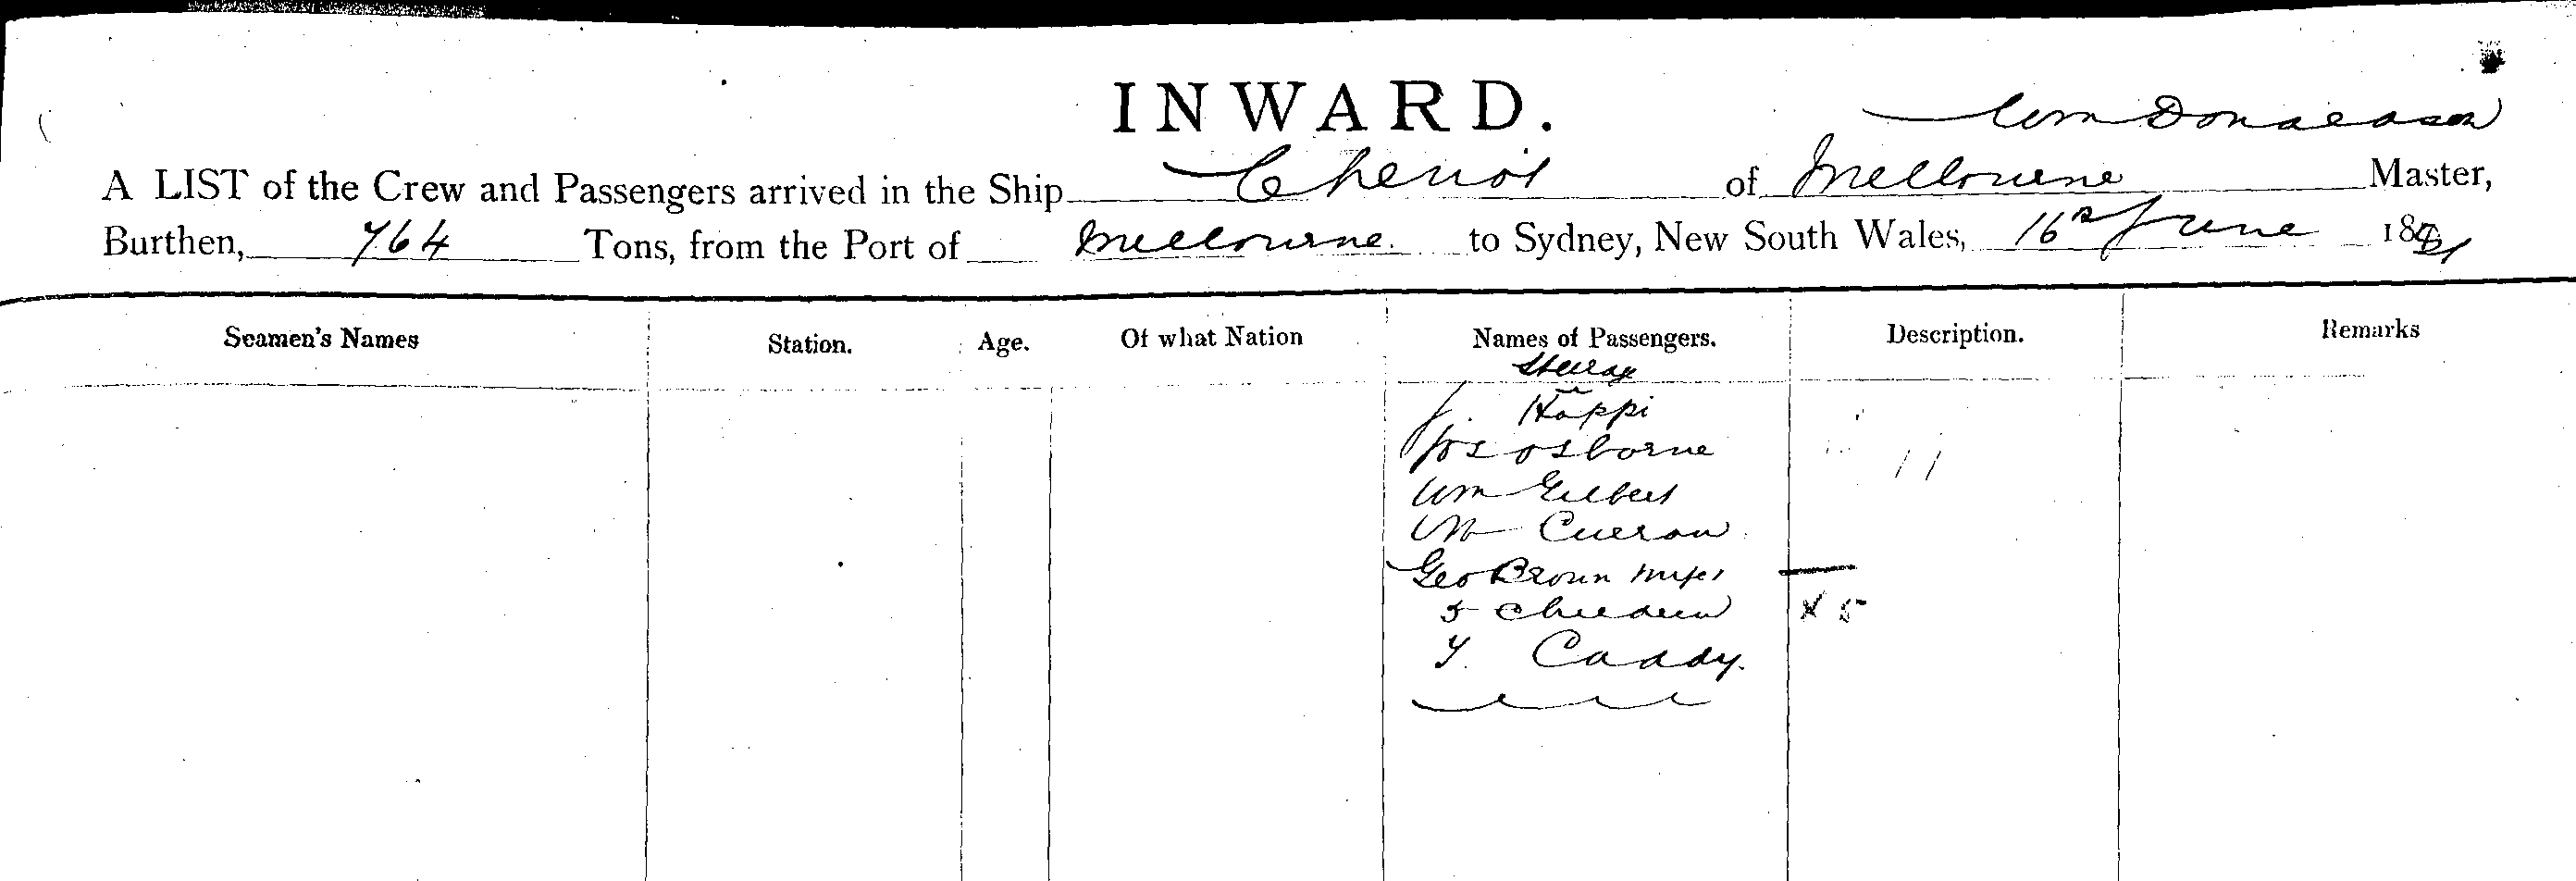 INWARD.
Wm Donaldson
A LIST of the Crew and Passengers arrived in the Ship Cheviot of Melbourne Master,
Burthen, 764 Tons, from the Port of Melbourne. to Sydney, New South Wales, 16th June 1881
Seamen's Names Station. Age. Of what Nation Names of Passengers. Description. Remarks
Steerage
J. Happi
Jos Osborne
Wm Gilbert
Wm Curran
Geo Brown wife &
5 children x 5
T. Caddy.